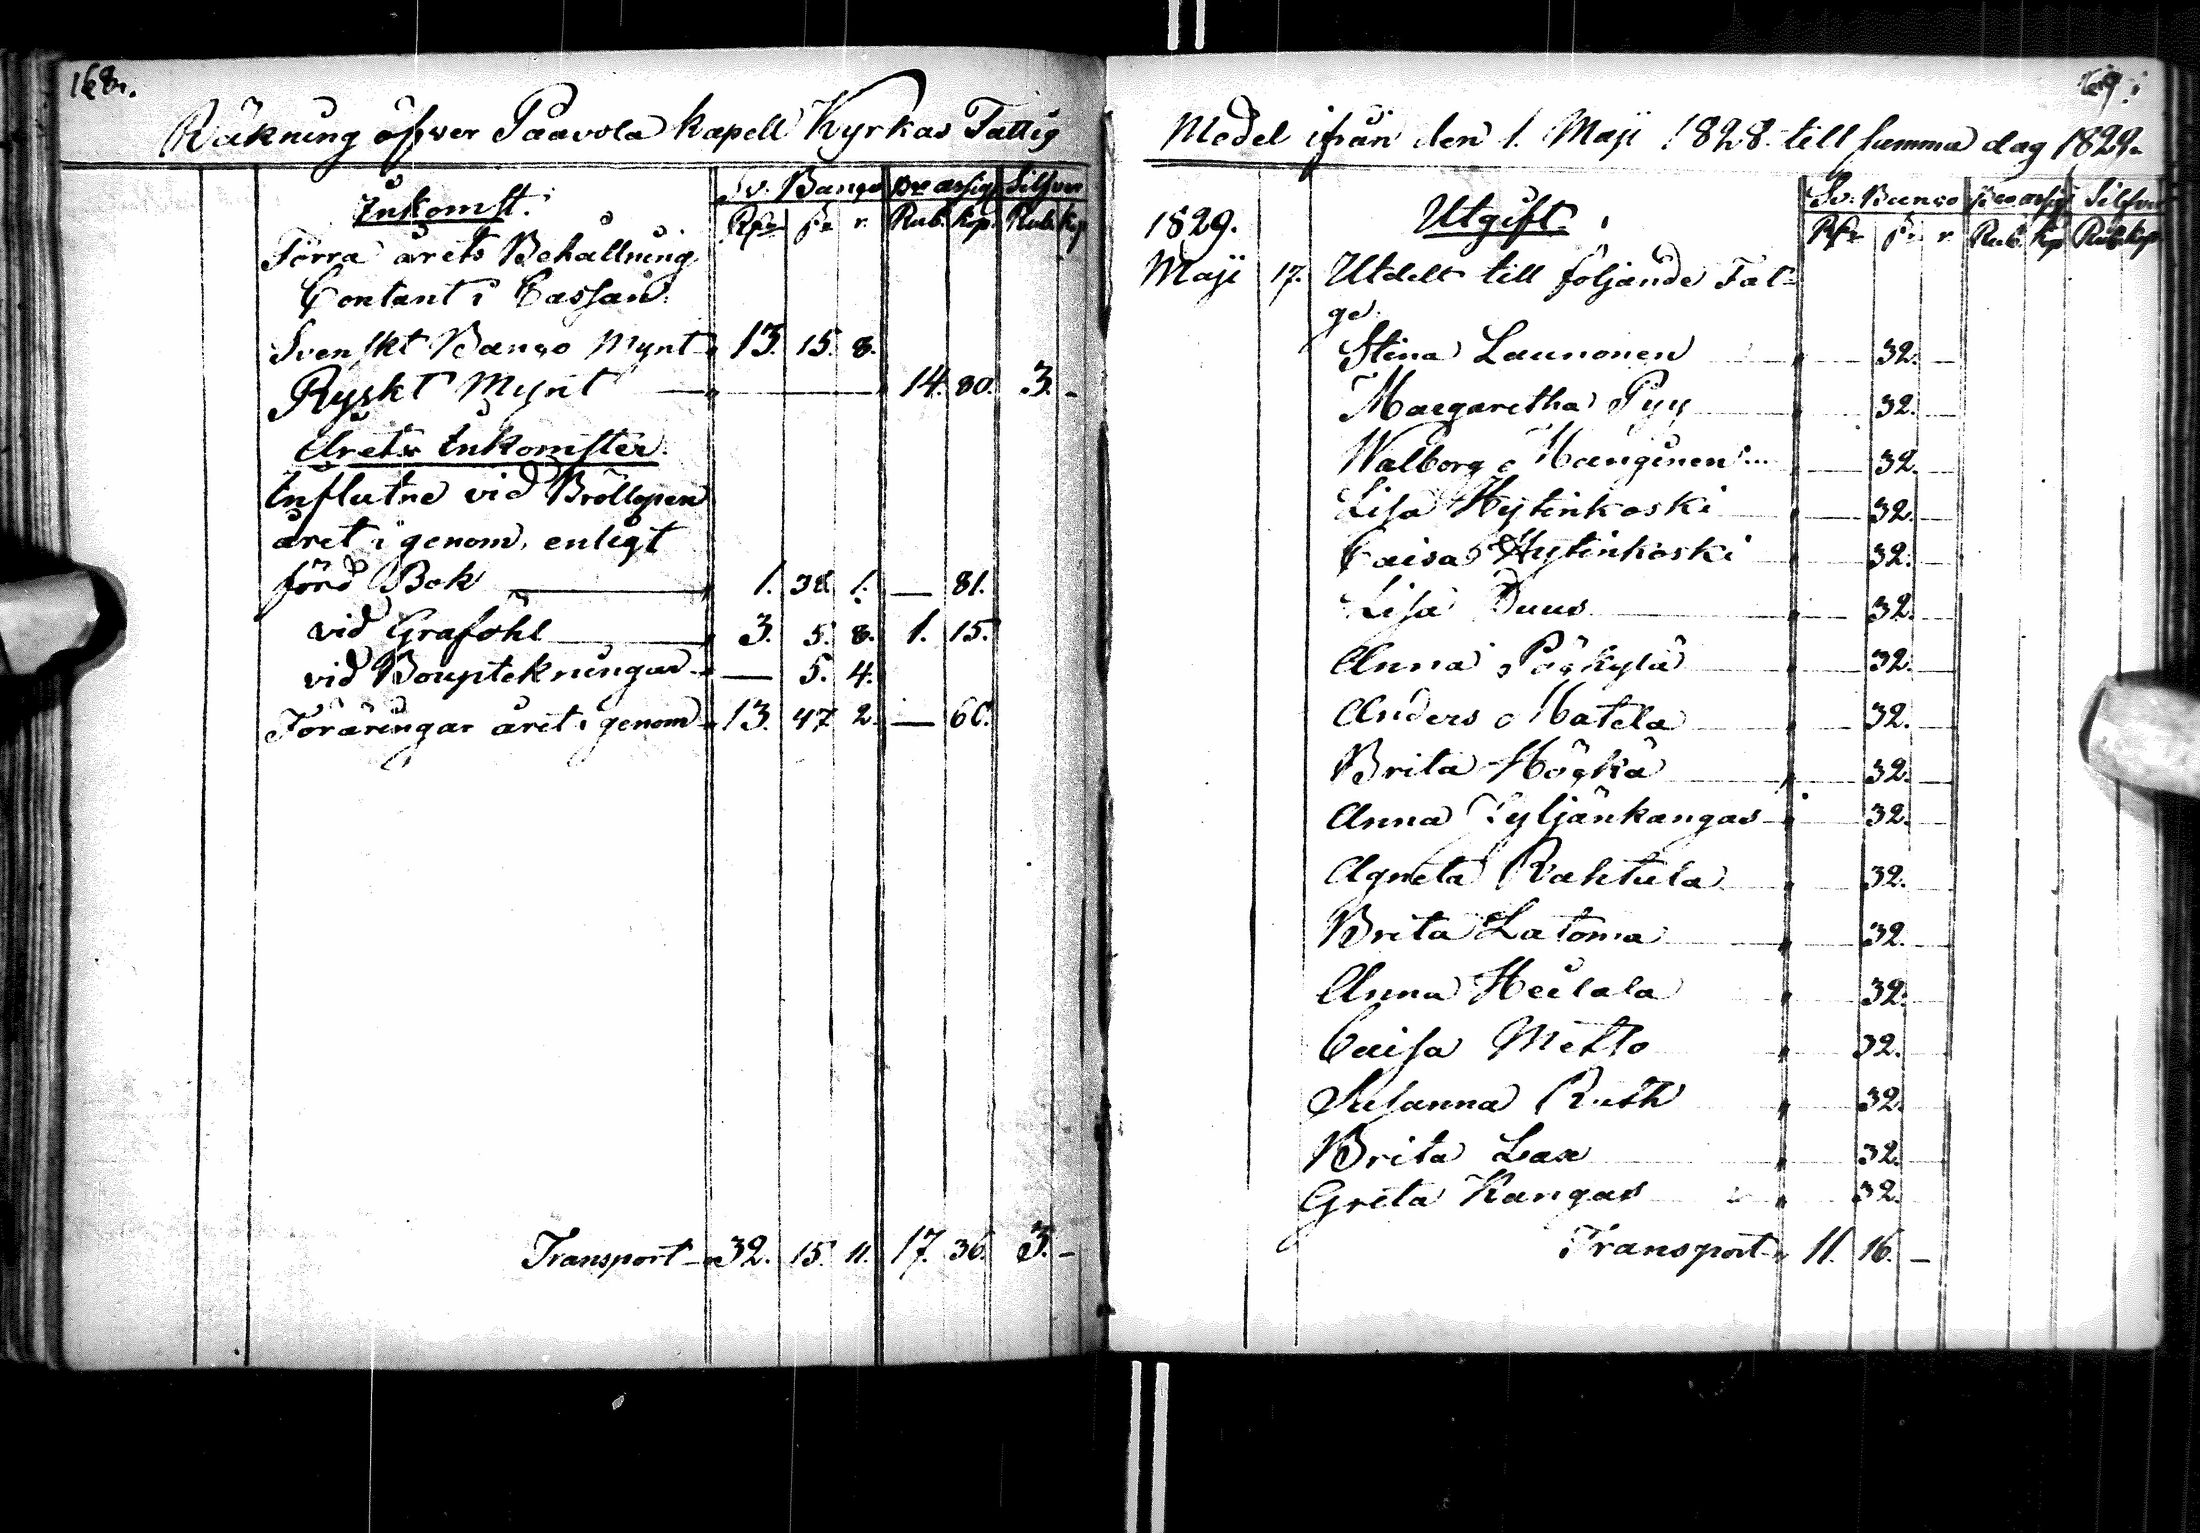 168.
Räkning öfver Paavola kapell Kyrkas Fattig
Inkomst.
Sv. Banco Bco assig Silfver
Rdr ß. r. Rub. kop. Rub. kop
Förra årets Behållning
Contant i Cassan.
Svenskt Banco Mynt 13. 15. 8.
Ryskt Mynt — 14. 80. 3. -
Årets Inkomster.
Influtne vid Bröllopen
året i genom, enligt
förd Bok — 1. 38. 1. — 81.
vid Graföhl — 3. 5. 8. 1. 15.
vid Bouptekningar — 5. 4.
Föräringar året i genom 13. 47 2. — 60.
Transport 32. 15. 11. 17. 36. 3. -
169.
Medel ifrån den 1. Maji 1828. till samma dag 1829.
Utgift.
Sv. Banco Bco assig Silfver
Rdr ß. r. Rub. kop Rub. kop
1829.
Maji 17. Utdelt till följande Fat-
ge.
Stina Launonen 32. —
Margaretha Pyy 32. —
Walborg Manginen 32. —
Lisa Hytinkoski 32. —
Caisa Hytinkoski 32. —
Lisa Duus 32. —
Anna Pöykylä 32. —
Anders Matela 32. —
Brita Höykä 32. —
Anna Syljänkangas 32. —
Agneta Rahtula 32. —
Brita Latoma 32. —
Anna Heilala 32. —
Caisa Metso 32. —
Susanna Ruth 32. —
Brita Lax 32. —
Greta Kangas 32. —
Transport 11. 16. —